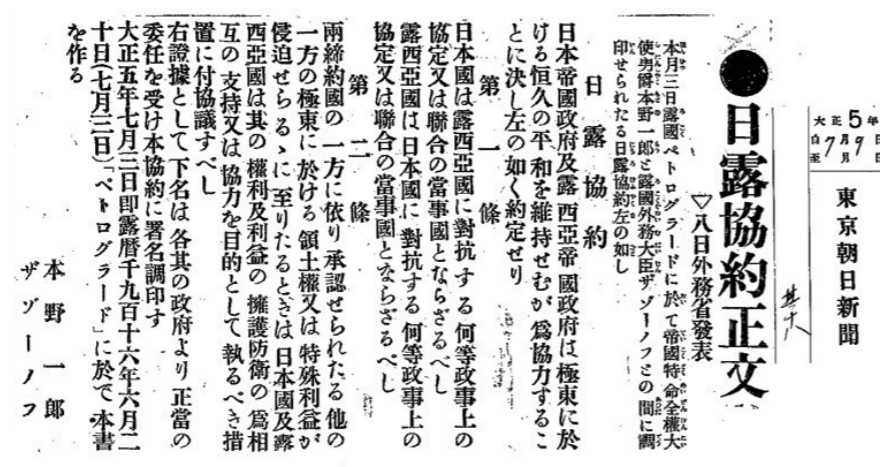 大正5年
自7月9日
至 月 日
東京朝日新聞
其十八
●日露協約正文
▽八日外務省發表
本月三日露國ペトログラードに於て帝國特命全權大
使男爵本野一郎と露國外務大臣サゾーノフとの間に調
印せられたる日露協約左の如し
日露協約
日本帝國政府及露西亞帝國政府は極東に於
ける恒久の平和を維持せむが爲協力するこ
とに決し左の如く約定せり
第一條
日本國は露西亞國に對抗する何等政事上の
協定又は聯合の當事國とならざるべし
露西亞國は日本國に對抗する何等政事上の
協定又は聯合の當事國とならざるべし
第二條
兩締約國の一方に依り承認せられたる他の
一方の極東に於ける領土權又は特殊利益が
侵迫せらるゝに至りたるときは日本國及露
西亞國は其の權利及利益の擁護防衛の爲相
互の支持又は協力を目的として執るべき措
置に付協議すべし
右證據として下名は各其の政府より正當の
委任を受け本協約に署名調印す
大正五年七月三日即露暦千九百十六年六月二
十日(七月三日)「ペトログラード」に於て本書
を作る
本野一郎
サゾーノフ